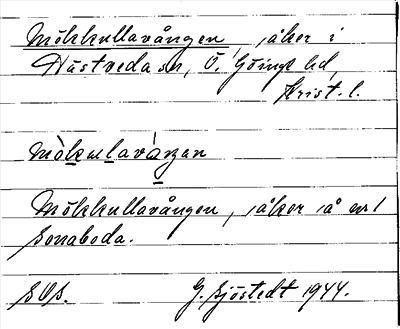 Mökkullavången, åker i
Hästveda sn, Ö. Göinge hd,
Krist. l.
mòkulaváŋan
Mökkullavången, åker å nr 1
Sonaboda.
SOS. G. Sjöstedt 1944.